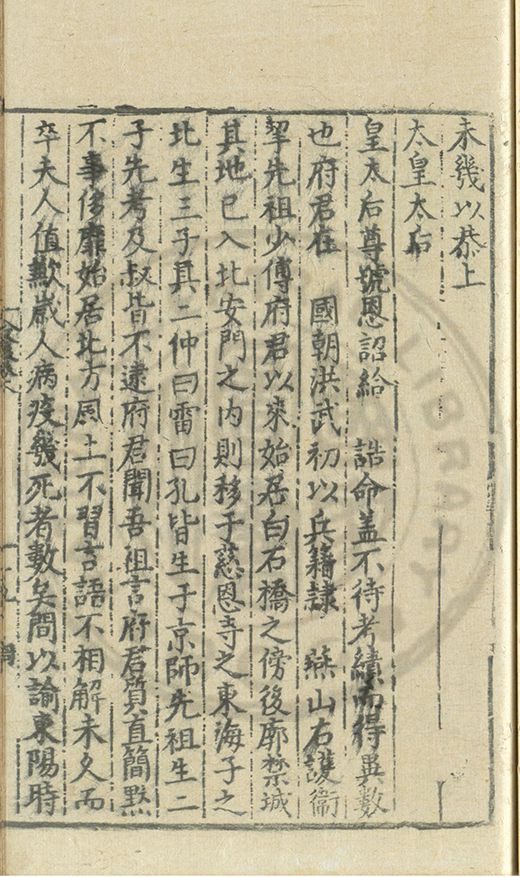 未幾以恭上
太皇太后
皇太后尊號恩詔給　誥命盖不待考績而得異數
也府君在　國朝洪武初以兵籍隷　燕山右護衞
挈先祖少傅府君以來始居白石橋之傍後廓禁城
其地已入北安門之内則移于慈恩寺之東海子之
北生三子其二仲曰雷曰孔皆生于京師先祖生二
子先考及叔皆不逮府君聞吾祖言府君質直簡黙
不事侈靡始居北方風土不習言語不相解未久而
卒夫人值歉嵗人病疫幾死者數矣間以諭東陽時
LIBRARY